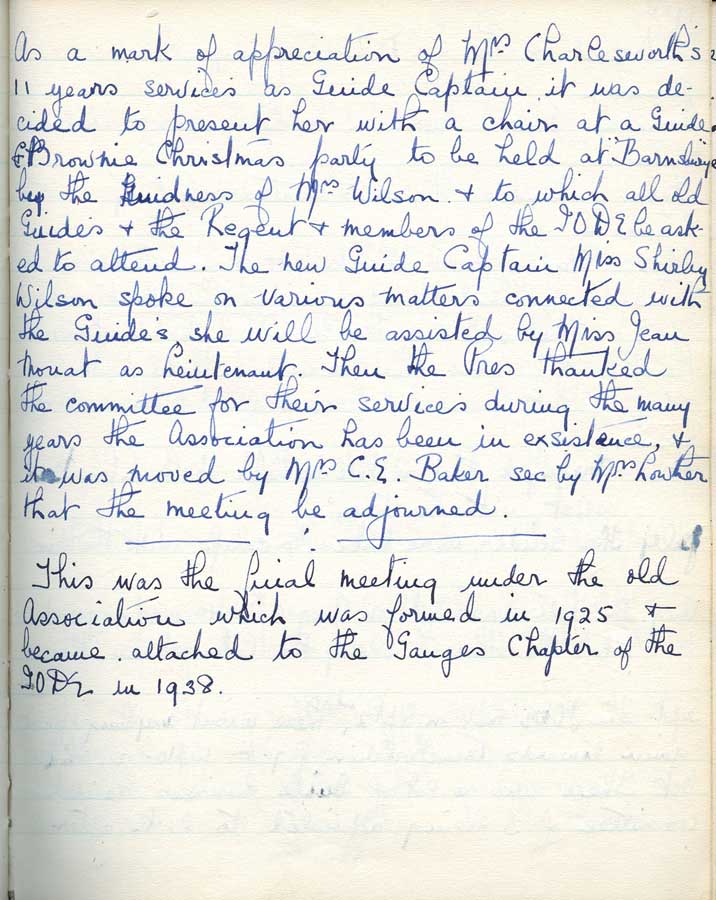 As a mark of appreciation of Mrs Charlesworth's
11 years services as Guide Captain it was de-
cided to present her with a chair at a Guide
& Brownie Christmas party to be held at "Barnsbury"
by the kindness of Mrs Wilson & to which all old
Guides & the Regent & members of the IODE be ask-
ed to attend. The new Guide Captain Miss Shirley
Wilson spoke on various matters connected with
the Guide's, she will be assisted by Miss Jean
Mouat as Leiutenant. Then the Pres thanked
the committee for their services during the many
years the Association has been in exsistence, &
it was moved by Mrs C.E. Baker sec by Mrs Lowther
that the meeting be adjourned.
This was the final meeting under the old
Association which was formed in 1925 &
became attached to the Ganges Chapter of the
IODE in 1938.